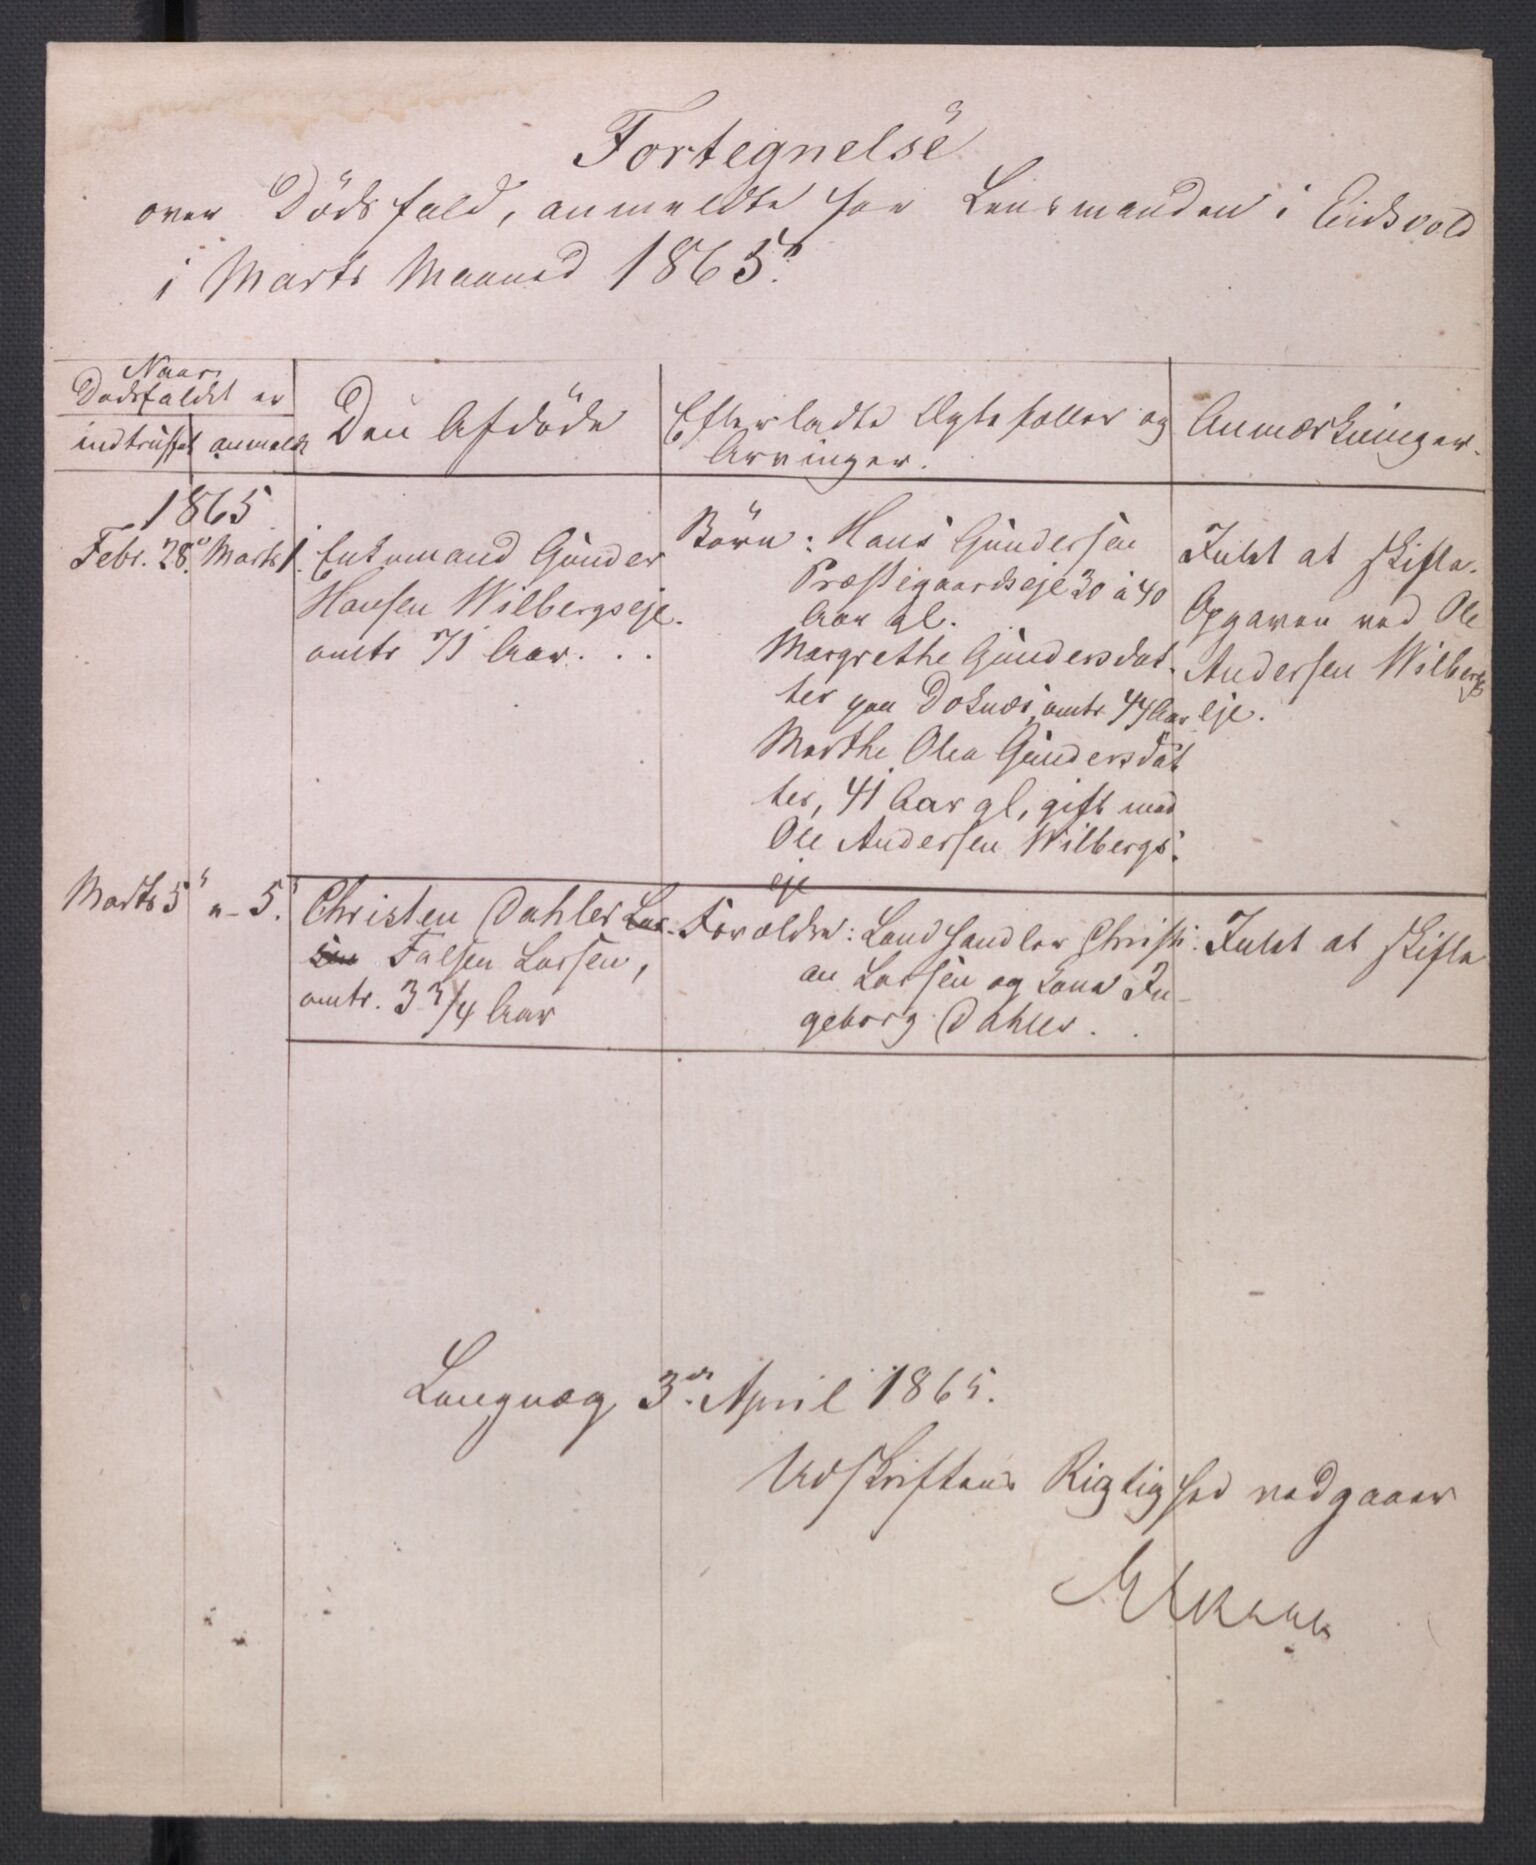 Fortegnelse
over Dödsfald, anmeldte for Lensmanden i Eidsvold
i Marts Maaned 1865.
Naar
Dødsfaldet er
indtruffet
anmeldt
Den Afdöde
Efterladte Ægtefæller og
Arvinger.
Anmærkninger.
1865
Febr. 28. Marts 1.
Enkemand Gunder
Hansen Wilbergseje.
omtr 71 Aar. . .
Börn: Hans Gundersen
Præstegaardseje 30 à 40
Aar gl.
Margrethe Gundersdat-
ter paa Doknæs, omtr 44 Aar
Marthe Olea Gundersdat
ter, 41 Aar gl, gift med
Ole Andersen Wilbergs-
eje
Intet at skifte.
Opgaven ved Ole
Andersen Wilbergs
eje.
Marts 5 " - 5.
Christen Dahler Lar-
sen Falsen Larsen,
omtr. 3 3/4 Aar
Forældre: Landhandler Christi-
an Larsen og Kone In-
geborg Dahler. .
Intet at skifte
Langvæg 3. April 1865.
Udskriftens Rigtighed vedgaaer